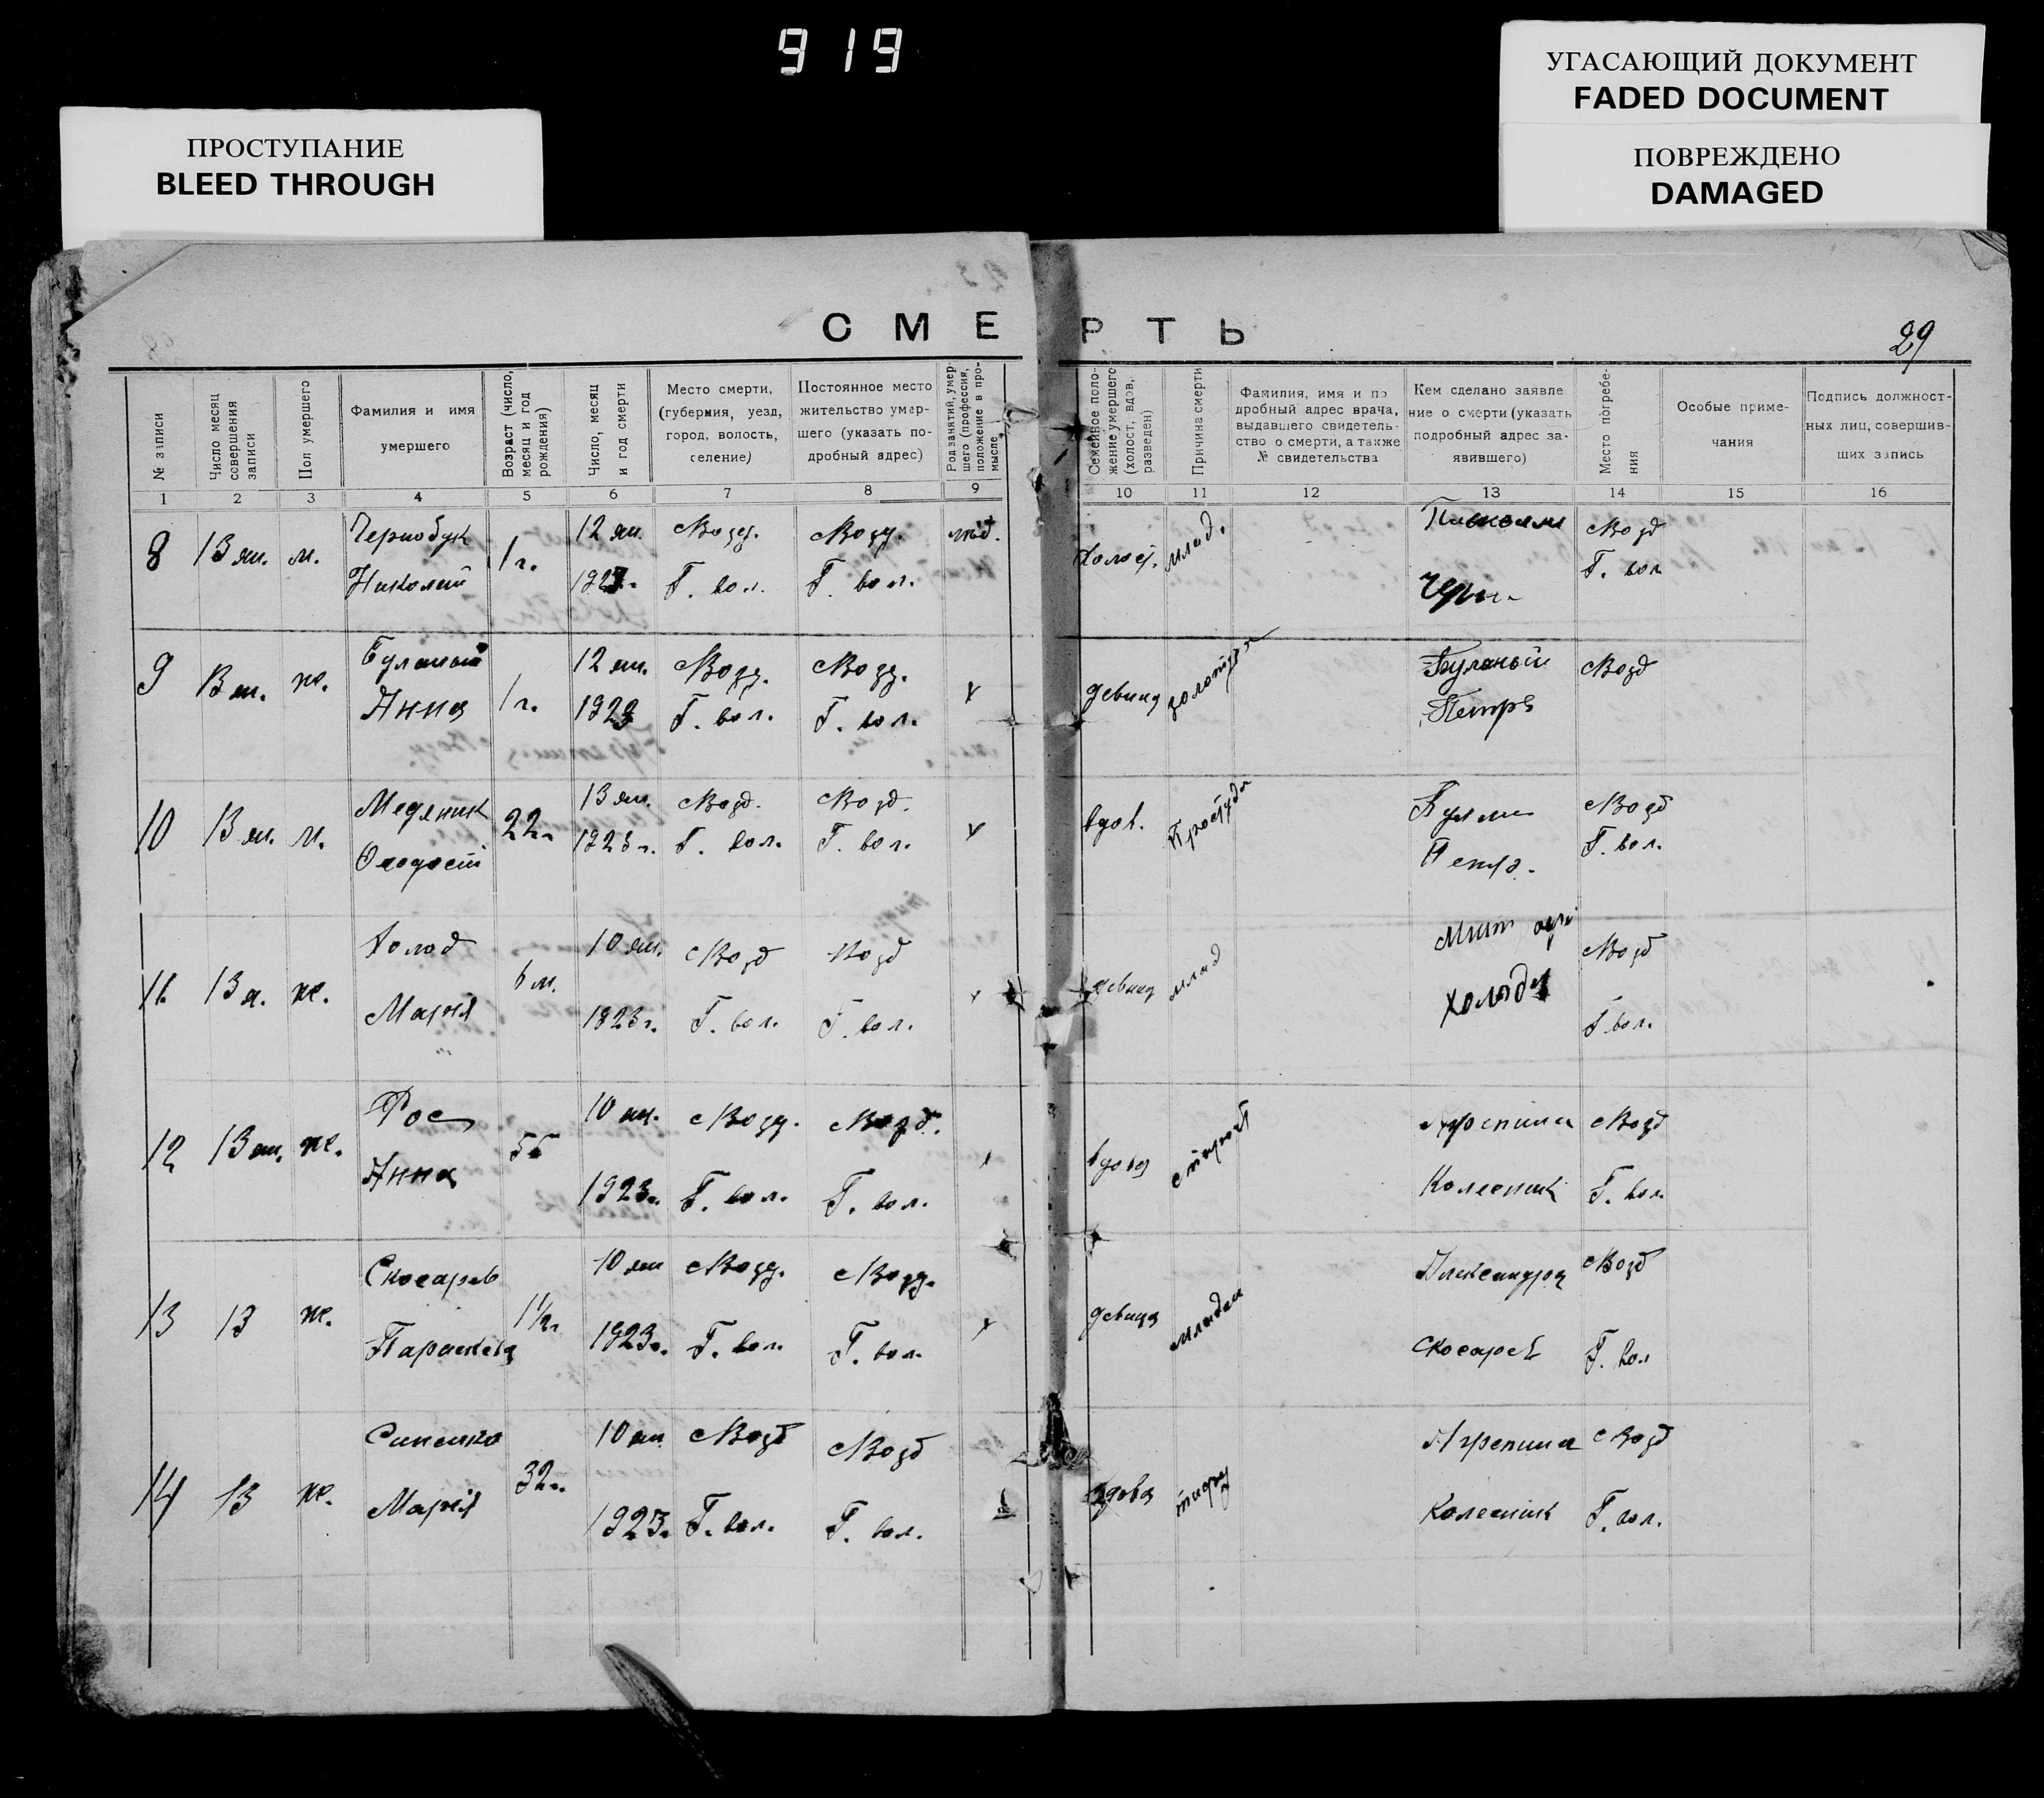 919
УГАСАЮЩИЙ ДОКУМЕНТ
FADED DOCUMENT
ПРОСТУПАНИЕ
BLEED THROUGH
ПОВРЕЖДЕНО
DAMAGED
СМЕРТЬ
29
№ записи
Число месяц
совершения
записи
Пол умершего
Фамилия и имя
умершего
Возраст (число,
месяц и год
рождения)
Число, месяц
и год смерти
Место смерти,
(губерния, уезд,
город, волость,
селение)
Постоянное место
жительство умер-
шего (указать по-
дробный адрес)
Род занятий, умер-
шего (профессия,
положение в про-
мысле
Семейное поло-
жение умершего
(холост, вдов,
разведен)
Причина смерти
Фамилия, имя и по
дробный адрес врача,
выдавшего свидетель-
ство о смерти, а также
№ свидетельства
Кем сделано заявле
ние о смерти (указать
подробный адрес за-
явившего)
Место погребе-
ния
Особые приме-
чания
Подпись должност-
ных лиц, совершив-
ших запись
1 2 3 4 5 6 7 8 9 10 11 12 13 14 15 16
8 13 ян. м. Чернобук 1 г. 12 ян. Возд. Возд. млад. Холост. млад. Возд
Николай 1923г. Г. вол. Г. вол. Черн. Г. вол
9 13 ян. ж. Буланый 1 г. 12 ян. Возд. Возд. х девица золотуха Буланый Возд
Анна 1923 Г. вол. Г. вол. Петръ
10 13 ян. м. Медяник 22г. 13 ян. Возд. Возд. х вдов. Простуда Возд
Феодосий 1923г. Г. вол. Г. вол. Петр. Г. вол.
11 13 я. ж. Холод 6 м. 10 ян. Возд Возд девица млад Возд
Мария 1923г. Г. вол. Г. вол. Холода Г. вол.
12 13 ян. ж. Рос 55 10 ян. Возд. Возд. вдова старость Агрепина Возд
Анна 1923г. Г. вол. Г. вол. Колесник Г. вол.
13 13 ж. Скосарев 1½г. 10 ян Возд. Возд. х девица младен Александра Возд
Параскева 1923г. Г. вол. Г. вол. Скосарев Г. вол
14 13 ж. 32г. 10 ян. Возд Возд вдова тиф Агрепина Возд
Мария 1923. Г. вол. Г. вол. Колесник Г. вол.